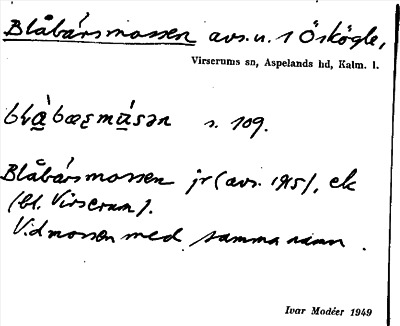 Blåbärsmossen avs. u. 1 Öskögle,
Virserums sn, Aspelands hd, Kalm. l.
s. 109.
Blåbärsmossen jr (avs. 1915), ek
(bl. Virserum).
Vid mossen med samma namn.
Ivar Modéer 1949